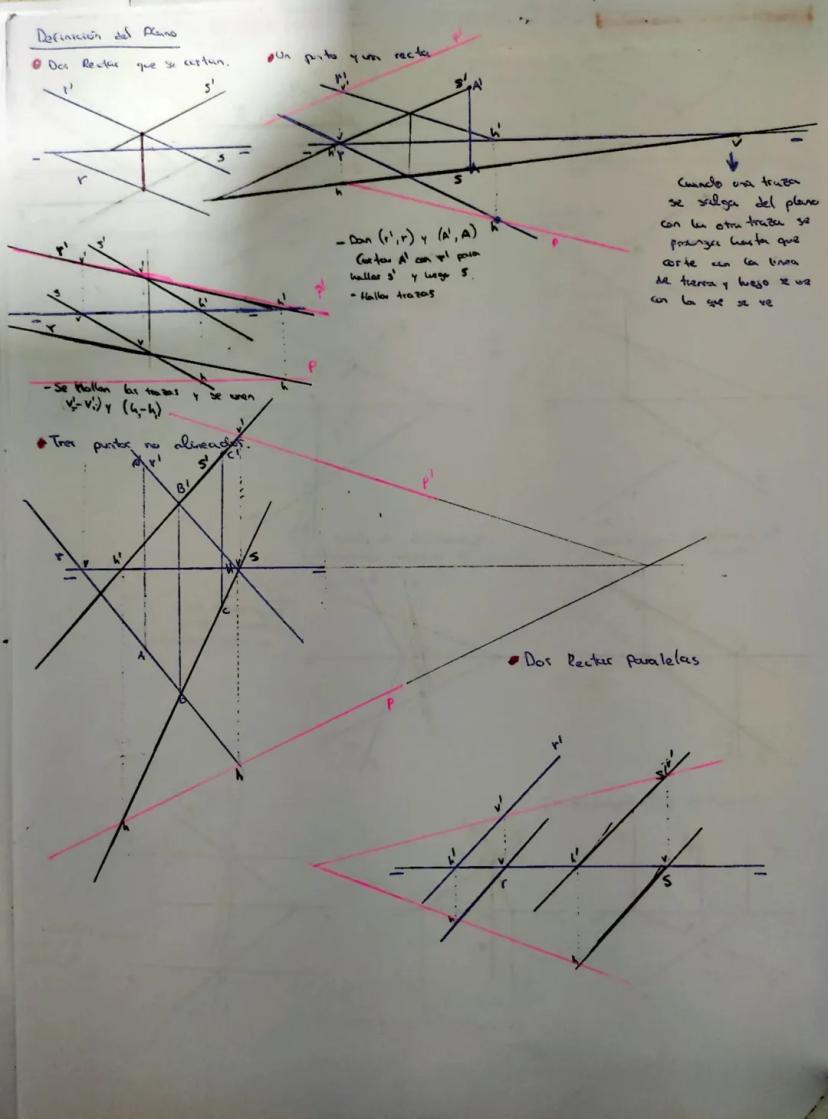 Definición del Plano
Dos Rectas que se cortan.
r'
s'
s
r
Un punto y una recta
P'
r'
v'
s'
A'
h'
v
h
s
h
P
v
Cuando una traza
se salga del plano
con la otra traza se
prolonga hasta que
corte con la linea
de tierra y luego se une
con la que se ve
- Dan (r', r) y (A', A)
Cortas A' con r' para
hallar s' y luego s.
- Hallar trazas
r'
v'
s'
v'
h'
h'
P'
s
r
v
v
h
h
P
- Se hallan las trazas y se unen
Tres puntos no alineados.
v'
A'
r'
s'
C'
B'
P'
r
v
h'
h'
v
s
C
A
B
P
h
h
Dos Rectas paralelas
r'
s'
v'
v'
h'
v
r
h'
v
s
h
h